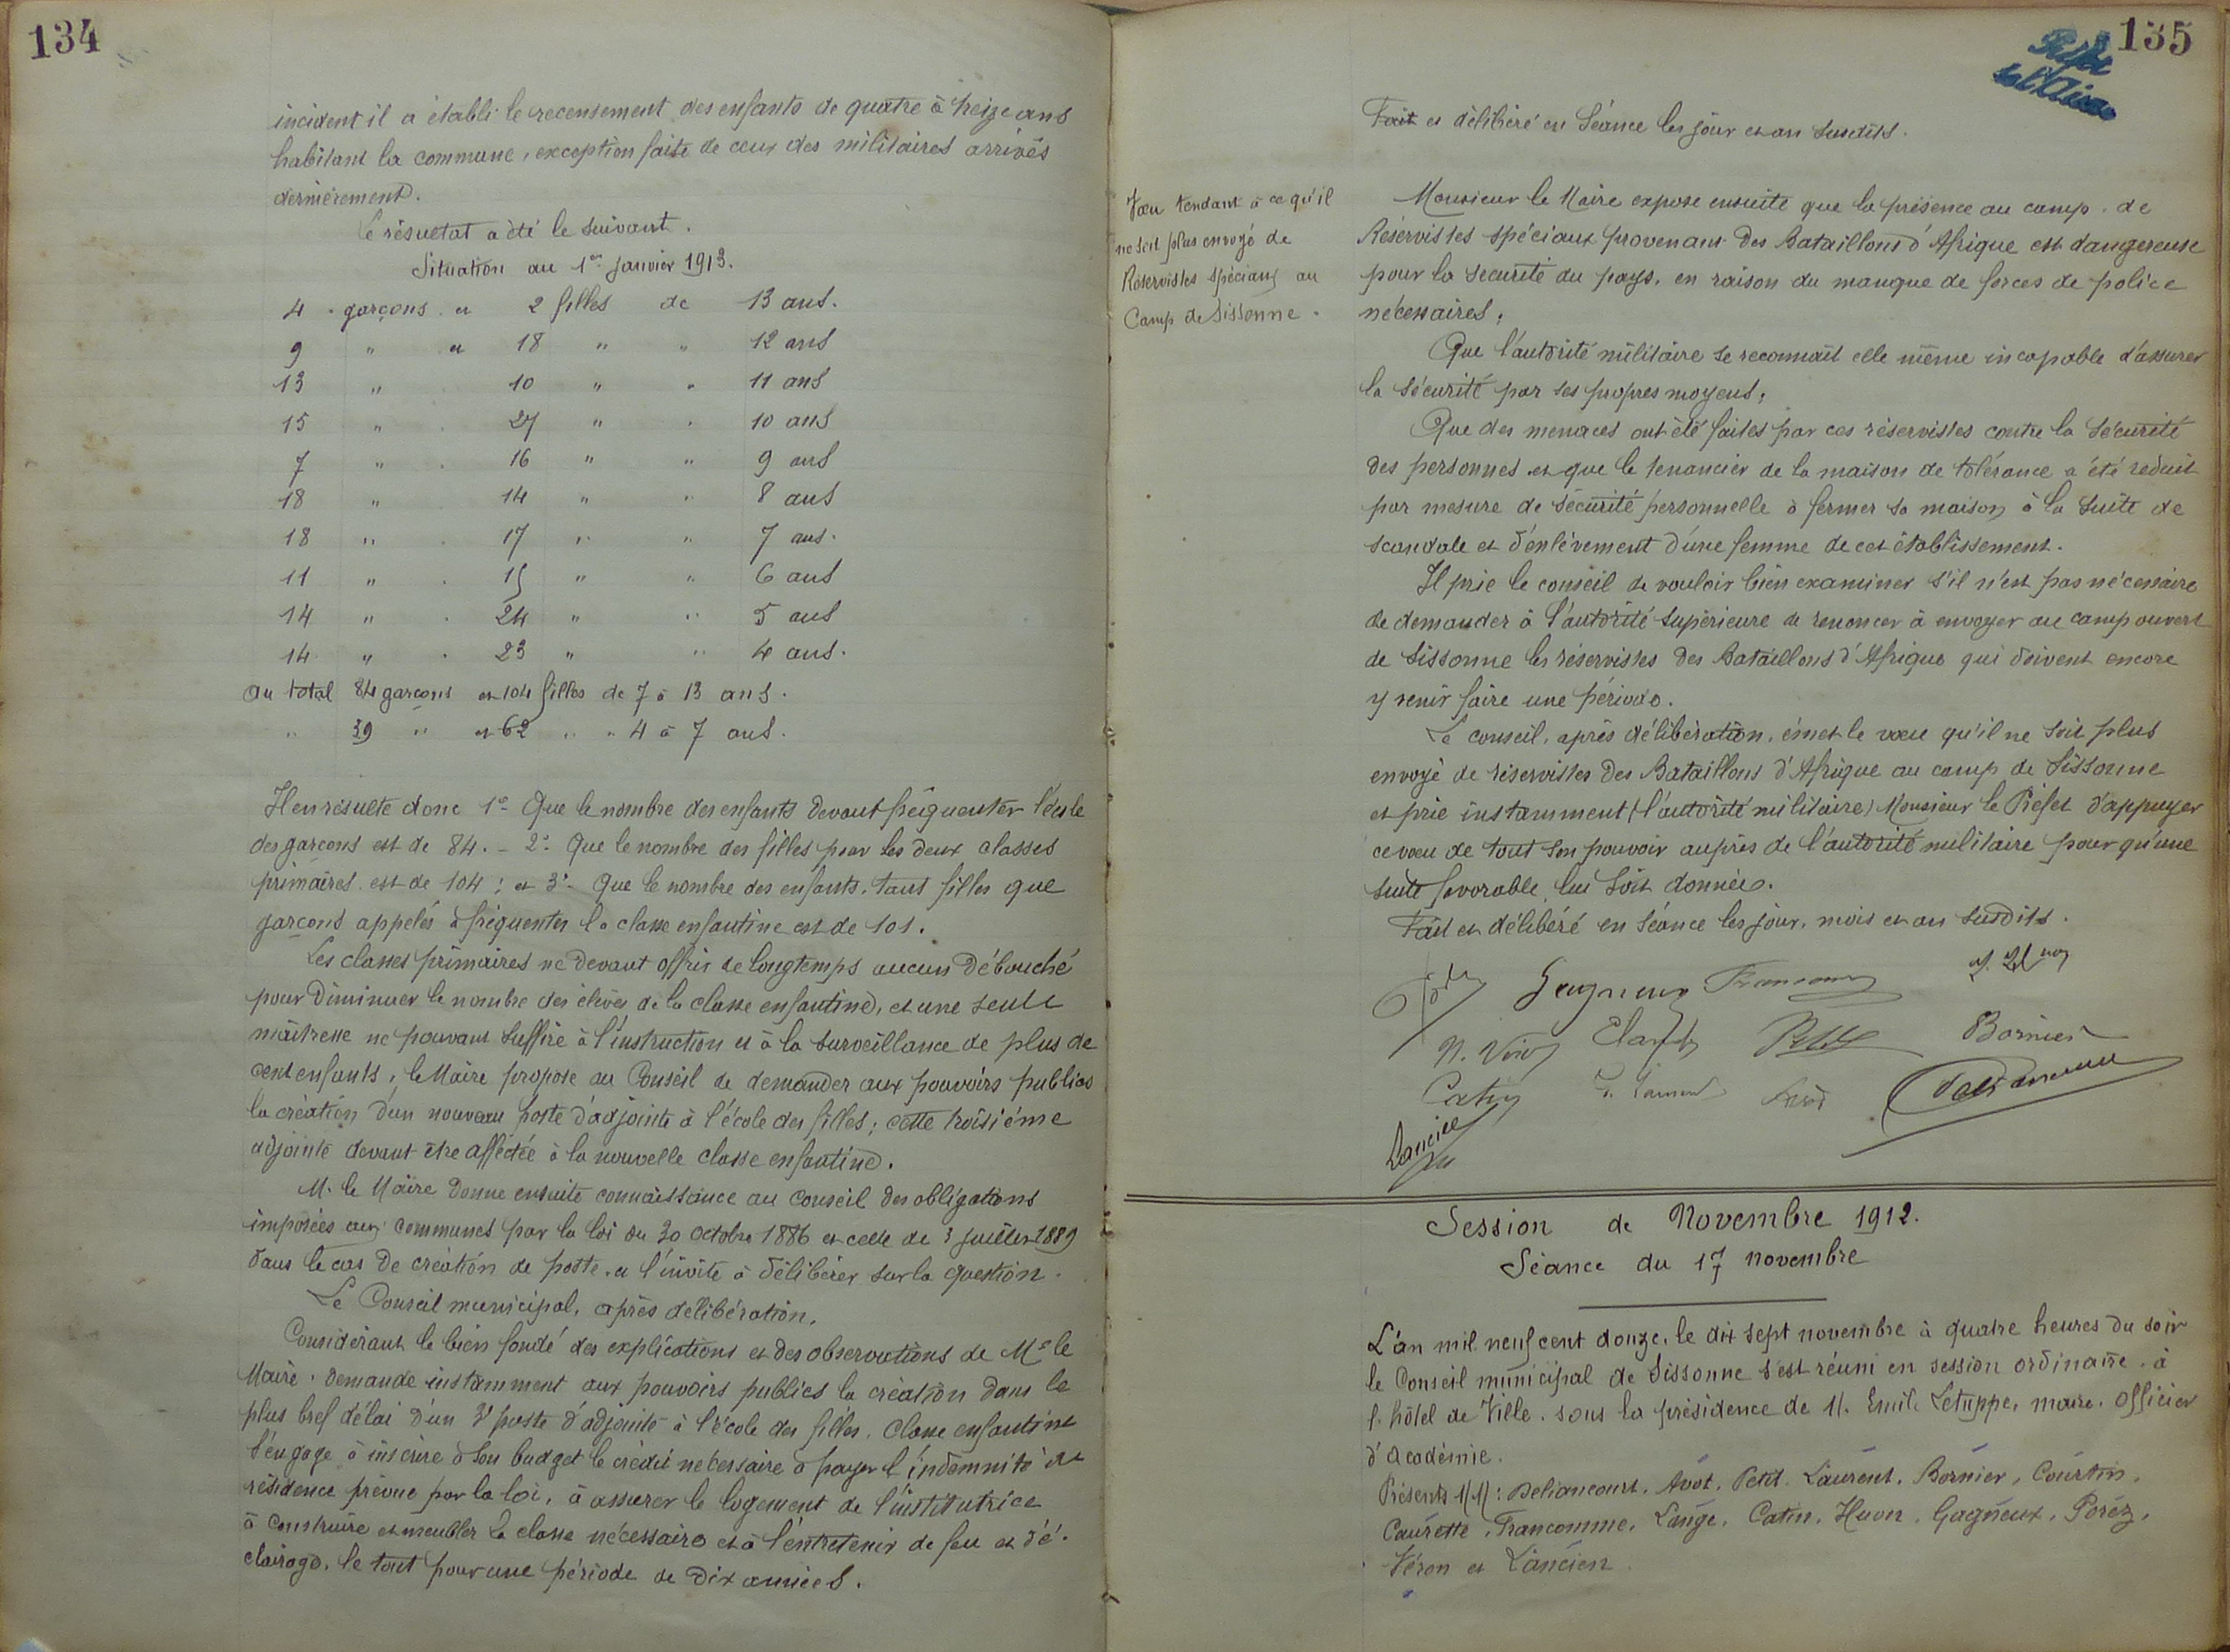 134
incident il a établi le recensement des enfants de quatre à treize ans
habitant la commune, exception faite de ceux des militaires arrivés
dernièrement.
Le résultat a été le suivant.
Situation au 1er Janvier 1913.
4 garçons et 2 filles de 13 ans.
9 " et 18 " " 12 ans
13 " 10 " " 11 ans
15 " 27 " " 10 ans
7 " 16 " " 9 ans
18 " 14 " " 8 ans
18 " 17 " " 7 ans.
11 " 15 " " 6 ans
14 " 24 " " 5 ans
14 " 23 " " 4 ans.
au total 84 garçons et 104 filles de 7 à 13 ans.
" 39 " et 62 " " 4 à 7 ans.
Il en résulte donc 1° Que le nombre des enfants devant fréquenter l'école
des garçons est de 84. - 2° Que le nombre des filles pour les deux classes
primaires est de 104 ; et 3° Que le nombre des enfants, tant filles que
garçons appelés à fréquenter la classe enfantine est de 101.
Les classes primaires ne devant offrir de longtemps aucun débouché
pour diminuer le nombre des élèves de la classe enfantine, et une seule
maîtresse ne pouvant suffire à l'instruction et à la surveillance de plus de
cent enfants, le Maire propose au Conseil de demander aux pouvoirs publics
la création d'un nouveau poste d'adjointe à l'école des filles ; cette troisième
adjointe devant être affectée à la nouvelle classe enfantine.
M. le Maire donne ensuite connaissance au Conseil des obligations
imposées aux communes par la loi du 30 octobre 1886 et celle de 3 juillet 1889
dans le cas de création de poste et l'invite à délibérer sur la question.
Le Conseil municipal, après délibération,
Considérant le bien fondé des explications et des observations de Mr le
Maire, demande instamment aux pouvoirs publics la création dans le
plus bref délai d'un 3e poste d'adjointe à l'école des filles, classe enfantine
s'engage à inscrire à son budget le crédit nécessaire à payer l'indemnité de
résidence prévue par la loi, à assurer le logement de l'institutrice
à construire et meubler la classe nécessaire et à l'entretenir de feu et d'é-
clairage, le tout pour une période de dix années.
135
Préfet
de l'Aisne
Fait et délibéré en Séance les jour et an susdits.
Vœu tendant à ce qu'il
ne soit plus envoyé de
Réservistes spéciaux au
Camp de Sissonne.
Monsieur le Maire expose ensuite que la présence au camp de
Réservistes spéciaux provenant des Bataillons d'Afrique est dangereuse
pour la sécurité du pays, en raison du manque de forces de police
nécessaires,
Que l'autorité militaire se reconnaît elle même incapable d'assurer
la sécurité par ses propres moyens,
Que des menaces ont été faites par ces réservistes contre la sécurité
des personnes et que le tenancier de la maison de tolérance a été réduit
par mesure de sécurité personnelle à fermer sa maison à la suite de
scandale et d'enlèvement d'une femme de cet établissement.
Il prie le conseil de vouloir bien examiner s'il n'est pas nécessaire
de demander à l'autorité supérieure de renoncer à envoyer au camp ouvert
de Sissonne les réservistes des Bataillons d'Afrique qui doivent encore
y venir faire une période.
Le conseil, après délibération, émet le vœu qu'il ne soit plus
envoyé de réservistes des Bataillons d'Afrique au camp de Sissonne
et prie instamment (l'autorité militaire) Monsieur le Préfet d'appuyer
ce vœu de tout son pouvoir auprès de l'autorité militaire pour qu'une
suite favorable lui soit donnée.
Fait et délibéré en Séance les jour, mois et an susdits.
Gagneux Francomme
Bornier
Catin P. Laurent Avot Deliancourt
Lancien
Session de Novembre 1912.
Séance du 17 novembre
L'an mil neuf cent douze, le dix sept novembre à quatre heures du soir
le Conseil municipal de Sissonne s'est réuni en session ordinaire à
l'hôtel de Ville, sous la présidence de M. Emile Letuppe, maire, officier
d'académie.
Présents MM : Deliancourt, Avot, Petit, Laurent, Bornier, Courtin,
Caurette, Francomme, Lange, Catin, Huon, Gagneux, Porez,
Véron et Lancien.